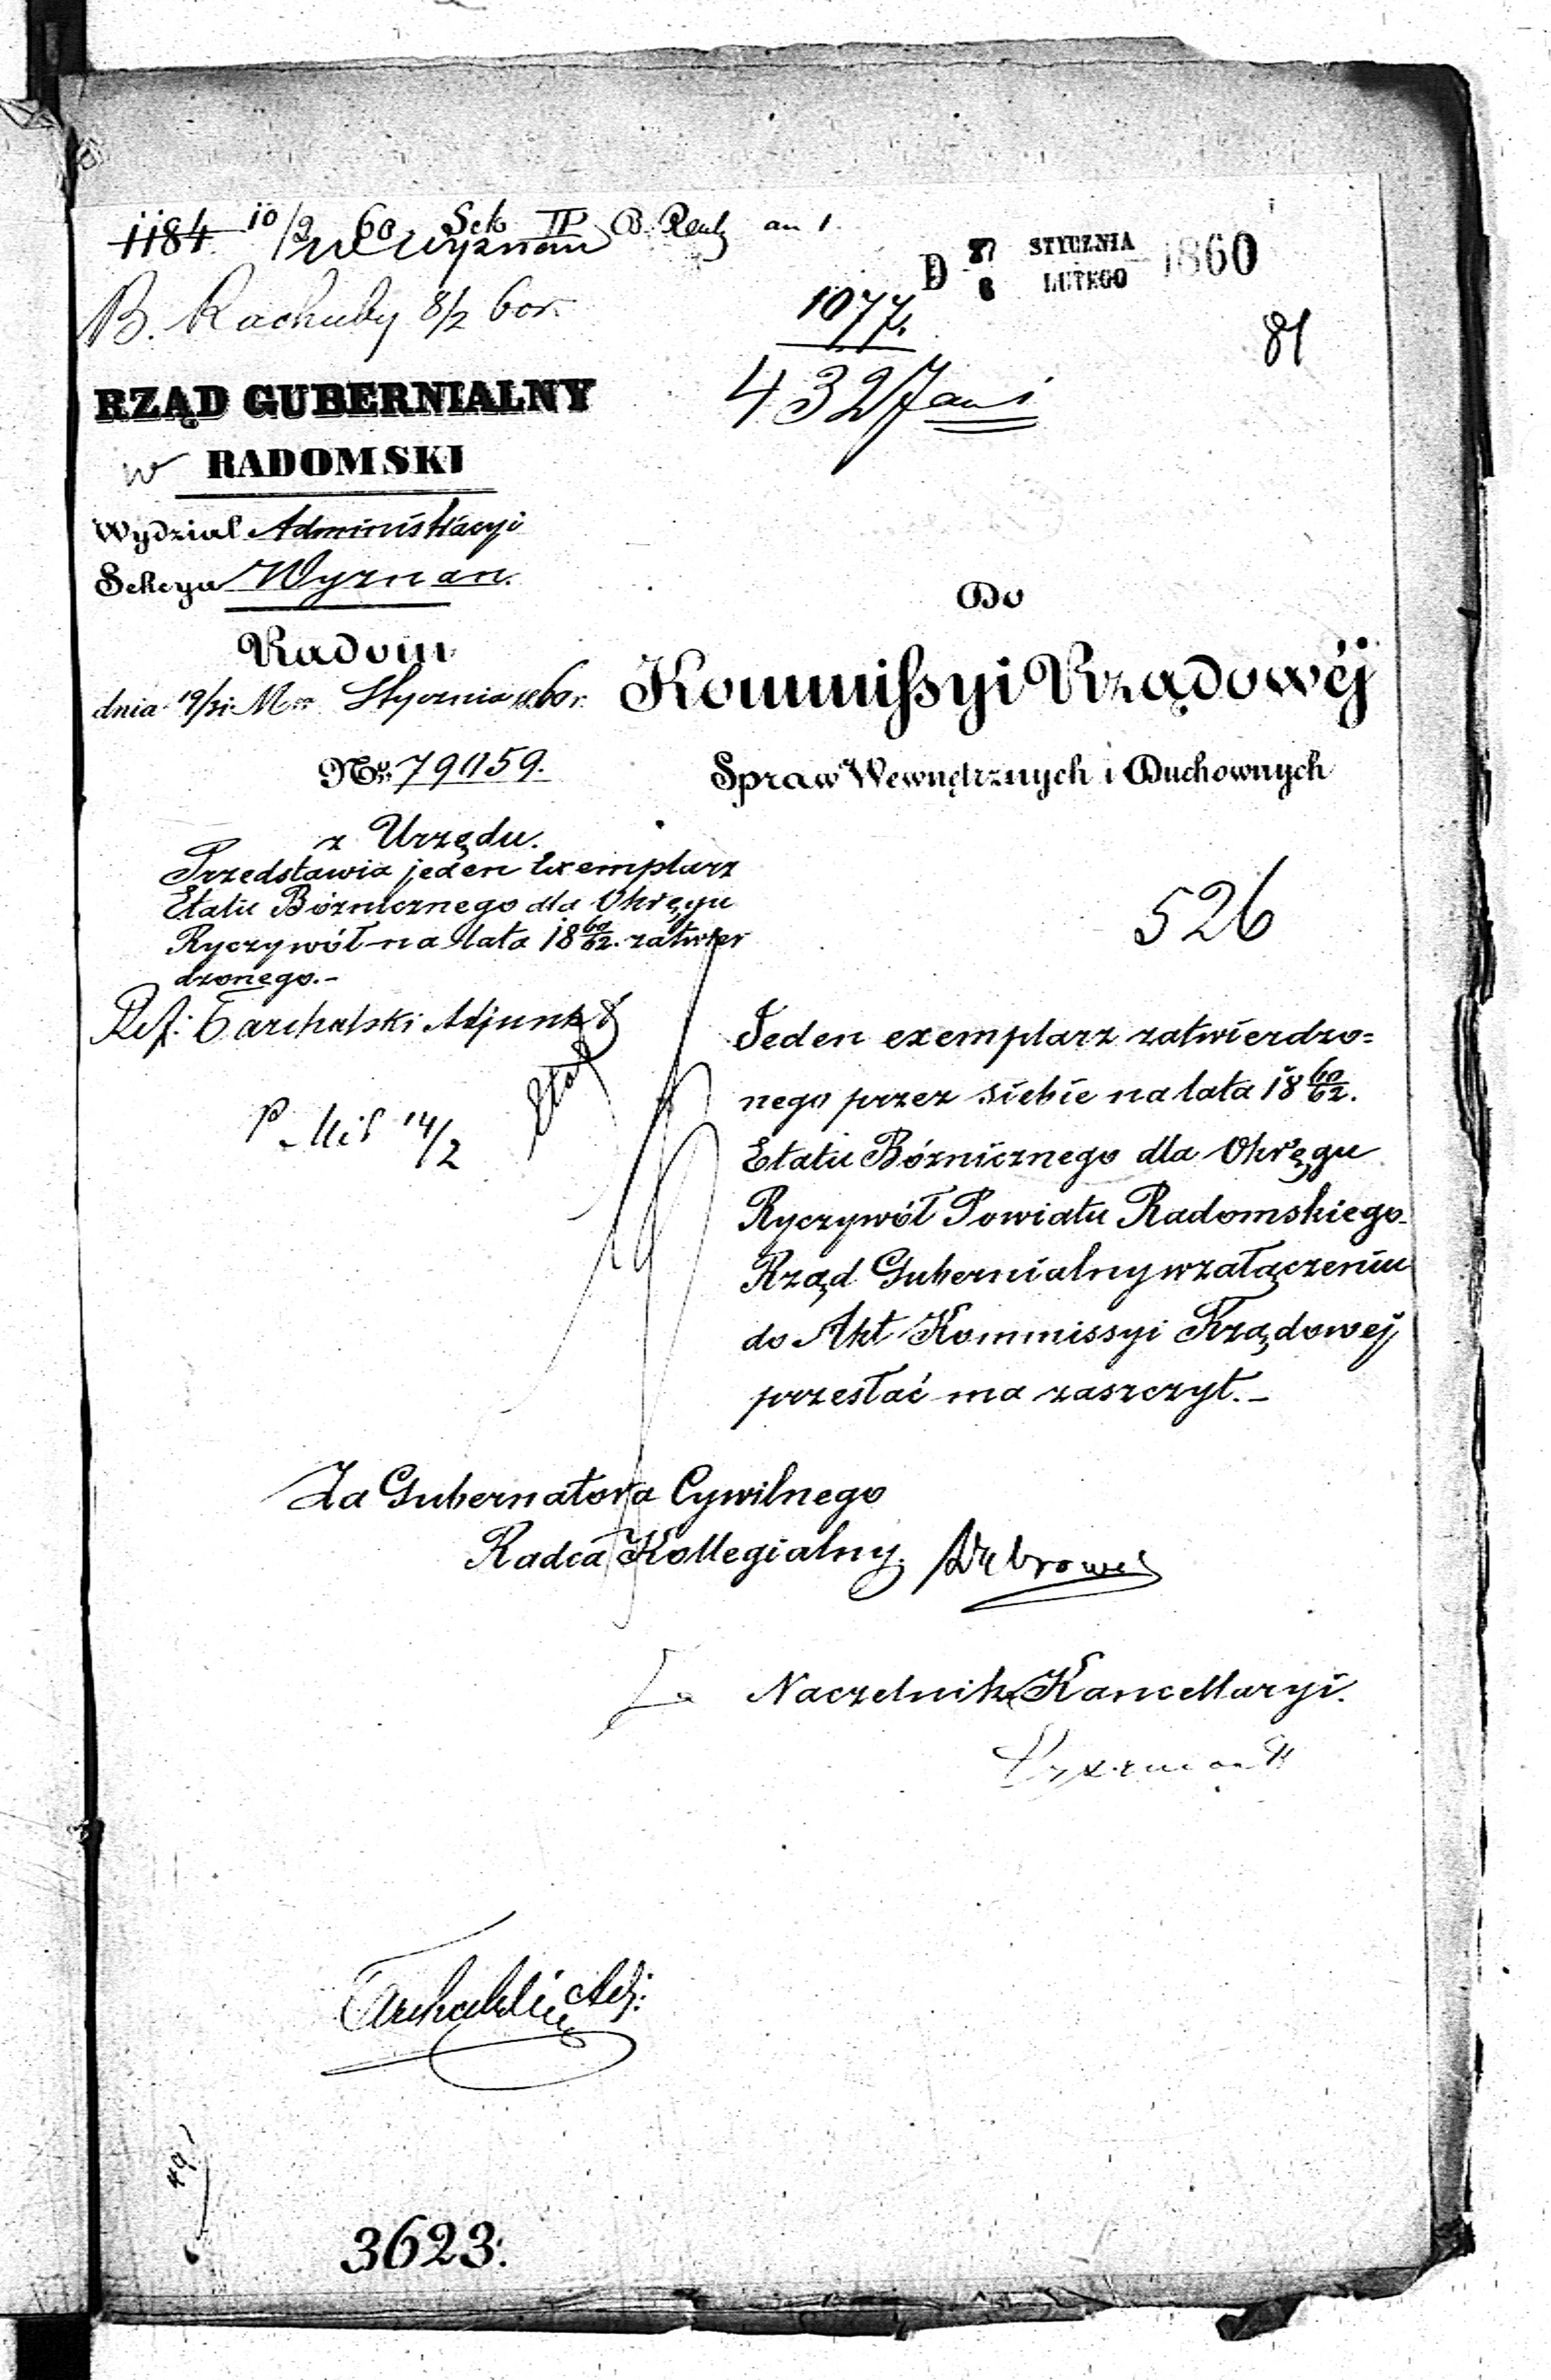 1184 10/2 60 Sek II B. an 1.
W Wyznan
B. Rachuby 8/2 60r.
D 27/8 STYCZNIA/LUTEGO 1860
1077.
81
432 7 an 1
RZĄD GUBERNIALNY
w RADOMSKI
Wydział Administracyi
Sekcya Wyznan.
Radom
dnia 19/31 Mca Stycznia 1860 r.
No. 79059.
Do
Kommissyi Rządowéj
Spraw Wewnętrznych i Duchownych
z Urzędu.
Przedstawia jeden Exemplarz
Etatu Bóżnicznego dla Okręgu
Ryczywół na lata 18 60/62. zatwier
dzonego.-
Ref: Tarchalski Adjunkt
Etat
14/2
526
Jeden exemplarz zatwierdzo=
nego przez siebie na lata 18 60/62.
Etatu Bóżnicznego dla Okręgu
Ryczywół Powiatu Radomskiego
Rząd Gubernialny w załączeniu
do Akt Kommissyi Rządowej
przesłać ma zaszczyt.-
Za Gubernatora Cywilnego
Radca Kollegialny.
Za Naczelnika Kancellaryi.
Tarchalski Adj:
49
3623: